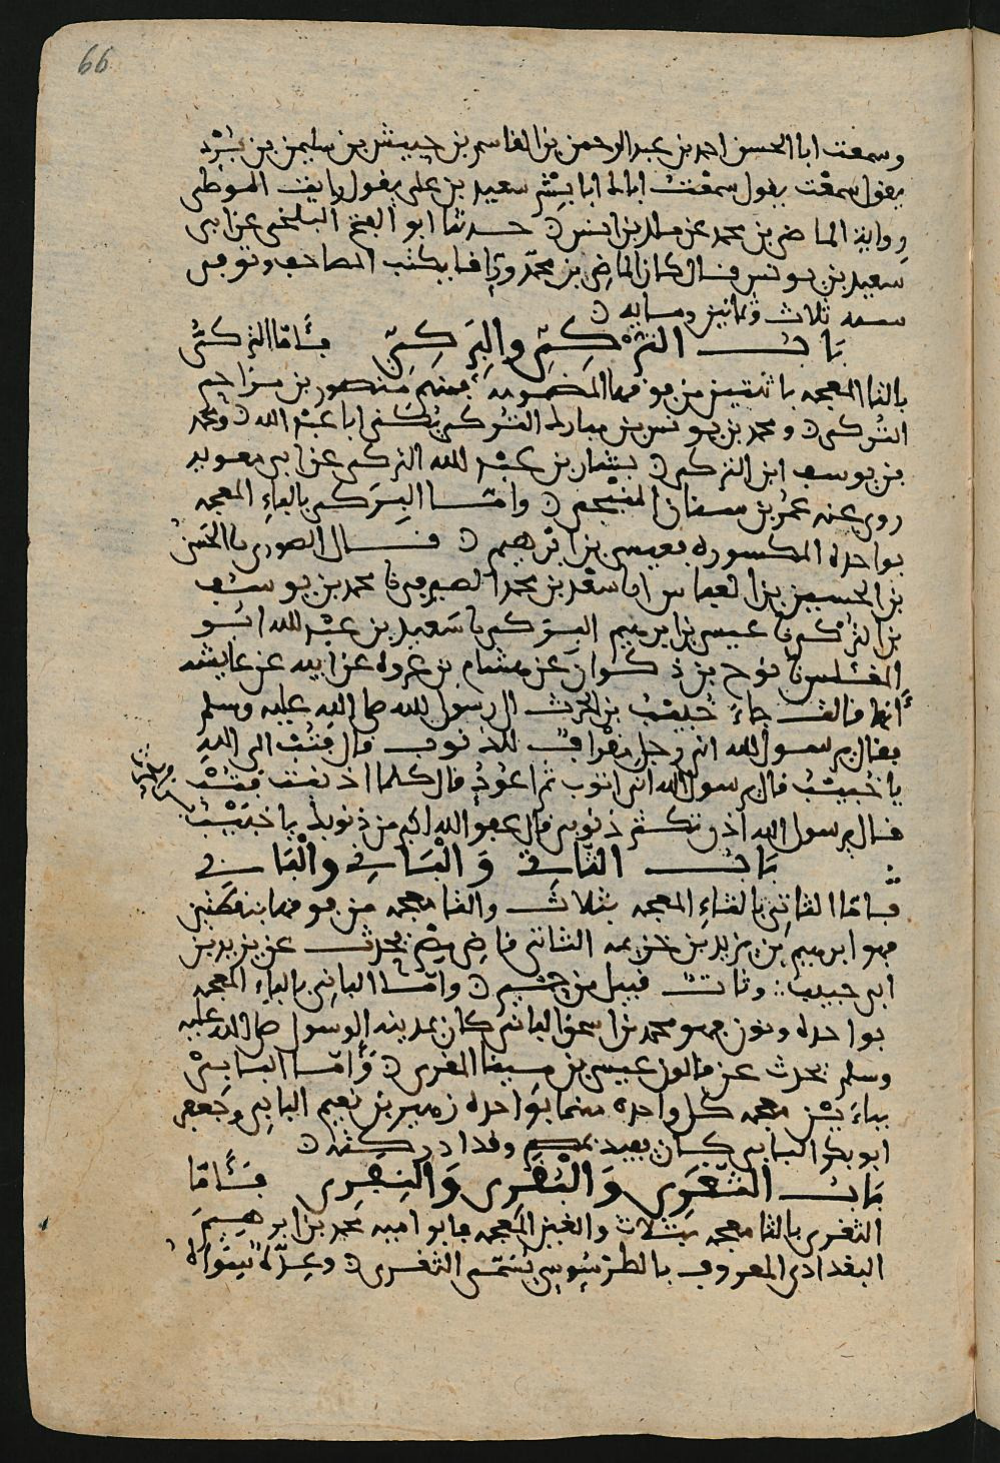 66
وسمعت ابا الحسن احمد بن عبد الرحمن بن القاسم بن حبيش بن سليمن بن برد
يقول سمعت يقول سمعت ابا بشر سعيد بن علي يقول رايت الموطى
رواية الماضي بن محمد عن ملك بن انس حدثنا ابو الفتح البلخي عن ابي
سعيد بن يونس قال كان الماضي بن محمد وراقا يكتب المصاحف وتوفي
سنه ثلاث وثمانين ومايه
باب التركي والبركي فاما التركي
بالتا المعجمه باثنتين من فوقها المضمومه فمنهم منصور بن مزاحم
التركي ومحمد بن يونس بن مبارك التركي يكنى ابا عبد الله ومحمد
بن يوسف ابن التركي بشار بن عبد الله التركي عن ابي معويه
روى عنه عمر بن سنان المنبجي واما البركي بالباء المعجمه
بواحده المكسوره فعيسى بن ابرهيم قال الصوري نا الحسن
بن الحسين بن العباس انا سعد بن محمد الصيرفي نا محمد بن يوسف
بن التركي نا عيسى بن ابرهيم البركي نا سعيد بن عبد الله ابو
المفلس نا نوح بن ذكوان عن هشام بن عروه عن ابيه عن عايشه
انها قالت جاء حبيب بن الحرث الى رسول الله صلى الله عليه وسلم
فقال يرسول الله اني رجل مقراف للذنوب قال فتب الى الله
يا حبيب قال يرسول الله اني اتوب ثم اعود قال كلما اذنبت فتب
قال يرسول الله اذن تكثر ذنوبي قال عفو الله اكبر من ذنوبك يا حبيب
باب الثاتي والباني والبابي
فاما الثاتي بالثاء المعجمه بثلاث والتا معجمه من فوقها بنقطتين
فهو ابرهيم بن يزيد بن خزيمه الثاتي قاضي مصر يحدث عن يزيد بن
ابي حبيب وثات قبيل من حمير واما الباني بالباء المعجمه
بواحده ونون فهو محمد بن اسحق الباني كان بمدينه الرسول صلى الله عليه
وسلم يحدث عن قالون عيسى بن مينا المقري واما البابي
بباءين معجمه كل واحده منهما بواحده زهير بن نعيم البابي وجعفر
ابو بكر البابي كان بعيد بمصر وقد ادركته
باب الثغري والبقري والنفري فاما
الثغري بالثا معجمه بثلاث والغين المعجمه فابو اميه محمد بن ابرهيم
البغدادي المعروف بالطرسوسي يسمى الثغري وعده سواه